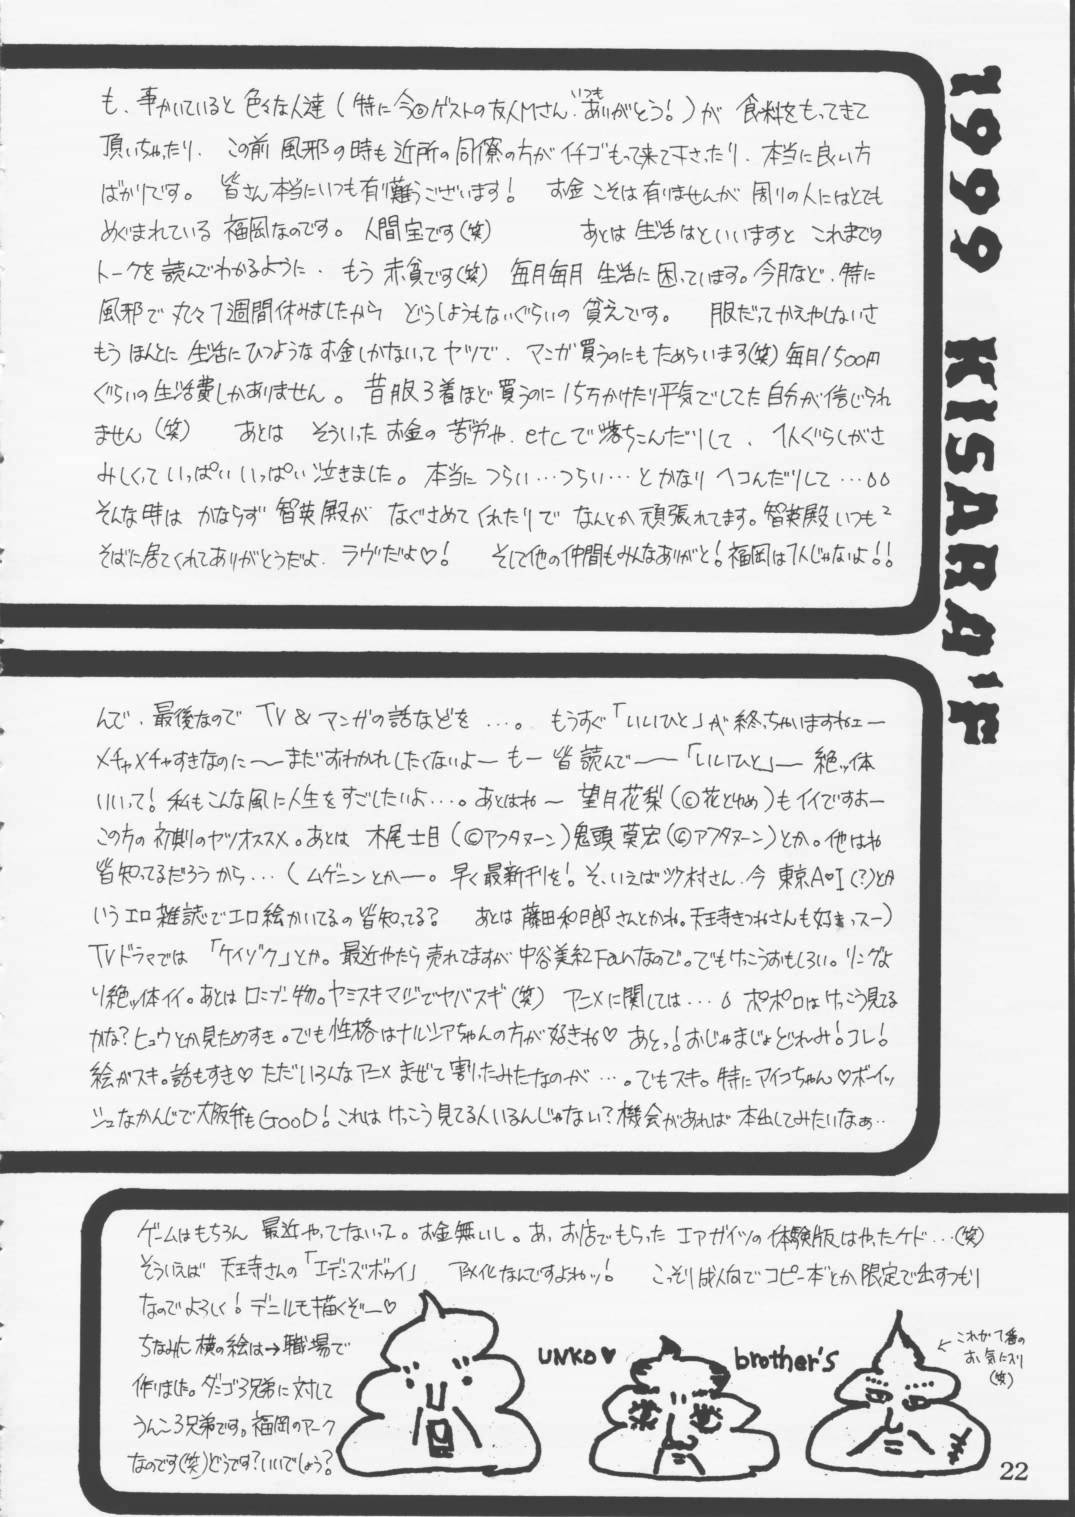 も、事かいていると色々な人達(特に今回ゲストの友人Mさん、いつもありがとう!)が 食料をもってきて
頂いちゃったり、この前 風邪の時も近所の同僚の方がイチゴもって来て下さったり、本当に良い方
ばかりです。 皆さん本当にいつも有り難うございます! お金こそは有りませんが 周りの人にはとても
めぐまれている 福岡なのです。人間宝です(笑) あとは 生活はといいますと これまでの
トークを 読んでわかるように、もう 赤貧です(笑) 毎月毎月 生活に困っています。今月など、特に
風邪で 丸々1週間休みましたから どうしようもないぐらいの 貧えです。 服だってかえやしないさ
もう ほんとに 生活にひつような お金しかないってヤツで、マンガ買うのにもためらいます(笑) 毎月1500円
ぐらいの生活費しかありません。昔服3着ほど買うのに15万かけたり平気でしてた自分が信じられ
ません(笑) あとは そういった お金の 苦労や、etcで落ちこんだりして、1人ぐらしがさ
みしくって いっぱい いっぱい 泣きました。本当に つらい…つらい…とかなり ヘコんだりして…
そんな時は かならず 智英殿が なぐさめてくれたりで なんとか頑張れてます。智英殿 いつも2
そばに居てくれてありがとうだよ、ラヴだよ♡! そして他の仲間もみんなありがと!福岡は1人じゃないよ!!
1999 KISARA'F
んで、最後なので TV & マンガの話などを …。 もうすぐ「いいひと」が終っちゃいますねェー
メチャメチャすきなのに〜〜まだおわかれしたくないよー もー 皆読んで〜〜「いいひと」ー 絶ッ体
いいって!私もこんな風に人生をすごしたいよ…。あとはね〜 望月花梨(©花とゆめ)もイイですおー
この方の初期のヤツオススメ。あとは 木尾士目(©アフタヌーン)鬼頭莫宏(©アフタヌーン)とか。他はね
皆知ってるだろうから…(ムゲニンとかー。早く最新刊を!。そ、いえば沙村さん、今 東京A♥I(?)とか
いうエロ雑誌でエロ絵かいてるの皆知ってる? あとは 藤田和日郎さんとかね。天王寺きつねさんも好きっスー)
TVドラマでは 「ケイゾク」とか。最近やたら売れてますが中谷美紀Fanなので。でもけっこうおもしろい。リングよ
り絶ッ体イイ。あとは ロニブー物。ヤミスキマジでヤバスギ(笑) アニメに関しては… ポポロはけっこう見てる
かな?ヒュウとか見ためすき。でも性格はナルシアちゃんの方が好きね♡ あとっ!おじゃまじょどれみ!コレ!
絵がスキ。話もすき♡ ただいろんなアニメ まぜて割ったみたなのが…。でもスキ。特にアイコちゃん♡ボーイッ
シュなかんじで大阪弁もGOOD!これは けっこう見てる人いるんじゃない?機会があれば 本出してみたいなぁ‥
ゲームはもちろん 最近やってないってえ。お金無いし。あ、お店でもらった エアガイツの体験版はやったケド…(笑)
そういえば 天王寺さんの「エデンズボゥイ」 アニメ化なんですよねッ! こっそり成人向でコピー本とか、限定で出すつもり
なのでよろしく!デニルも描くぞー♡
ちなみに横の絵は→職場で
作りました。ダンゴ3兄弟に対して
うんこ3兄弟です。福岡のアーク
なのです(笑)どうです?いいでしょう?
UNKO♥ brother's
←これが1番の
お気に入り
(笑)
22